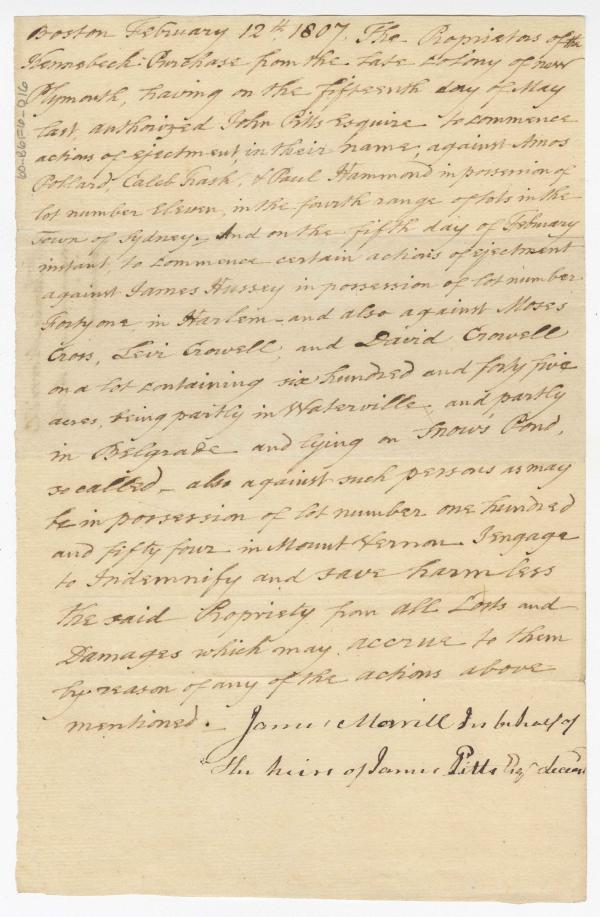 Boston February 12th. 1807. The Proprietors of the
Kennebeck Purchase from the late Colony of new
Plymouth, having on the fifteenth day of May
last, authorized John Pitts Esquire to commence
actions of ejectment, in their name, against Amos
Pollard, Caleb Trask, & Paul Hammond in possession of
lot number Eleven, in the fourth range of lots in the
Town of Sydney. And on the fifth day of February
instant, to commence certain actions of ejectment
against James Hussey in possession of lot number
Forty one, in Harlem - and also against Moses
Cross, Levi Crowell, and David Crowell
on a lot containing six hundred and forty five
acres, being partly in Waterville, and partly
in Belgrade and lying on Snow's Pond,
so called - also against such persons as may
be in possession of lot number one hundred
and fifty four in Mount Vernon. I engage
to Indemnify and save harmless
the said Propriety from all Costs and
Damages which may accrue to them
by reason of any of the actions above
mentioned. James Morrill In behalf of
the heirs of James Pitts Esqr deceasd